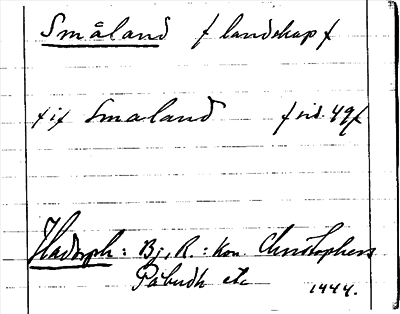 Småland / landskap /
/ i / Smaland / sid. 49 /
Hadorph: Bj, R.: Kon. Christophers
Påbudh etc 1444.